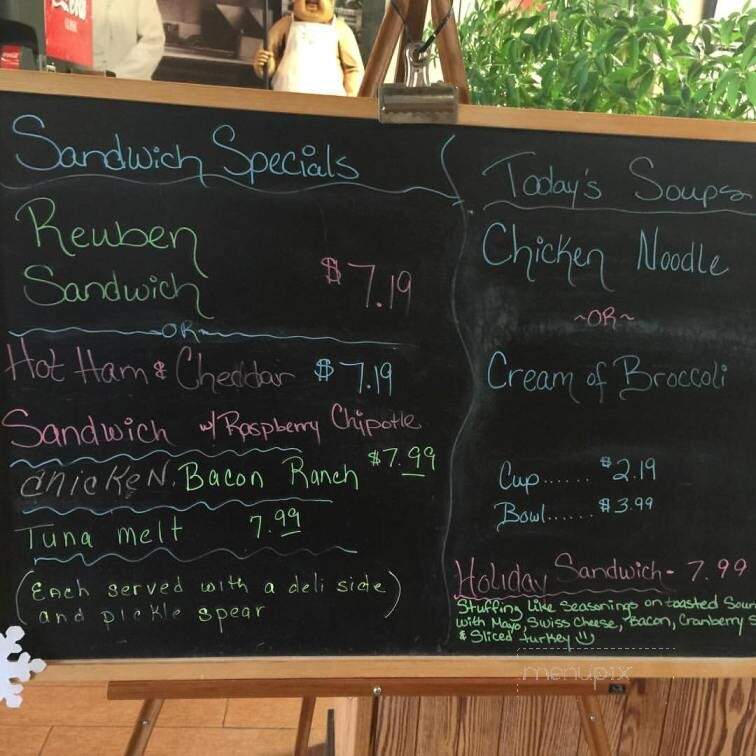 Sandwich Specials
Reuben
Sandwich
$7.19
~OR~
Hot Ham & Cheddar $7.19
Sandwich w/ Raspberry Chipotle
Chicken Bacon Ranch $7.99
Tuna melt 7.99
(Each served with a deli side
and pickle spear)
Today's Soups
Chicken Noodle
~OR~
Cream of Broccoli
Cup...... $2.19
Bowl...... $3.99
Holiday Sandwich- 7.99
Stuffing Like Seasonings on toasted Sour
with Mayo, Swiss Cheese, Bacon, Cranberry S
& Sliced turkey
menupix